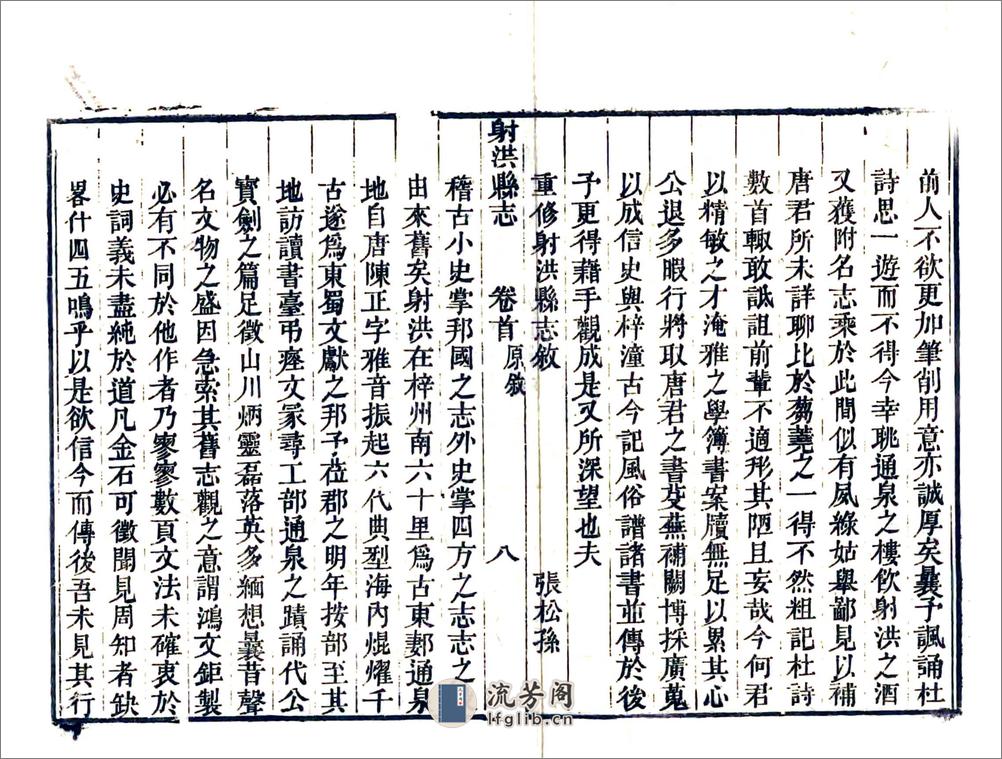 前人不欲更加筆削用意亦誠厚矣曩予諷誦杜
詩思一遊而不得今幸眺通泉之樓飲射洪之酒
又獲附名志乘於此間似有夙緣姑舉鄙見以補
唐君所未詳聊比於芻蕘之一得不然粗記杜詩
數首輙敢詆詛前輩不適形其陋且妄哉今何君
以精敏之才淹雅之學簿書案牘無足以累其心
公退多暇行將取唐君之書芟蕪補闕博採廣蒐
以成信史與梓潼古今記風俗譜諸書並傳於後
予更得藉手觀成是又所深望也夫
重修射洪縣志敘 張松孫
射洪縣志 卷首 原敘 八
稽古小史掌邦國之志外史掌四方之志志之
由來舊矣射洪在梓州南六十里爲古東郪通泉
地自唐陳正字雅音振起六代典型海內焜耀千
古遂爲東蜀文獻之邦予莅郡之明年按部至其
地訪讀書臺弔瘞文冢尋工部通泉之蹟誦代公
寶劍之篇足徵山川炳靈磊落英多緬想曩昔聲
名文物之盛因急索其舊志觀之意謂鴻文鉅製
必有不同於他作者乃寥寥數頁文法未確衷於
史詞義未盡純於道凡金石可徵聞見周知者缺
畧什四五鳴乎以是欲信今而傳後吾未見其行
流芳阁
lfglib.cn